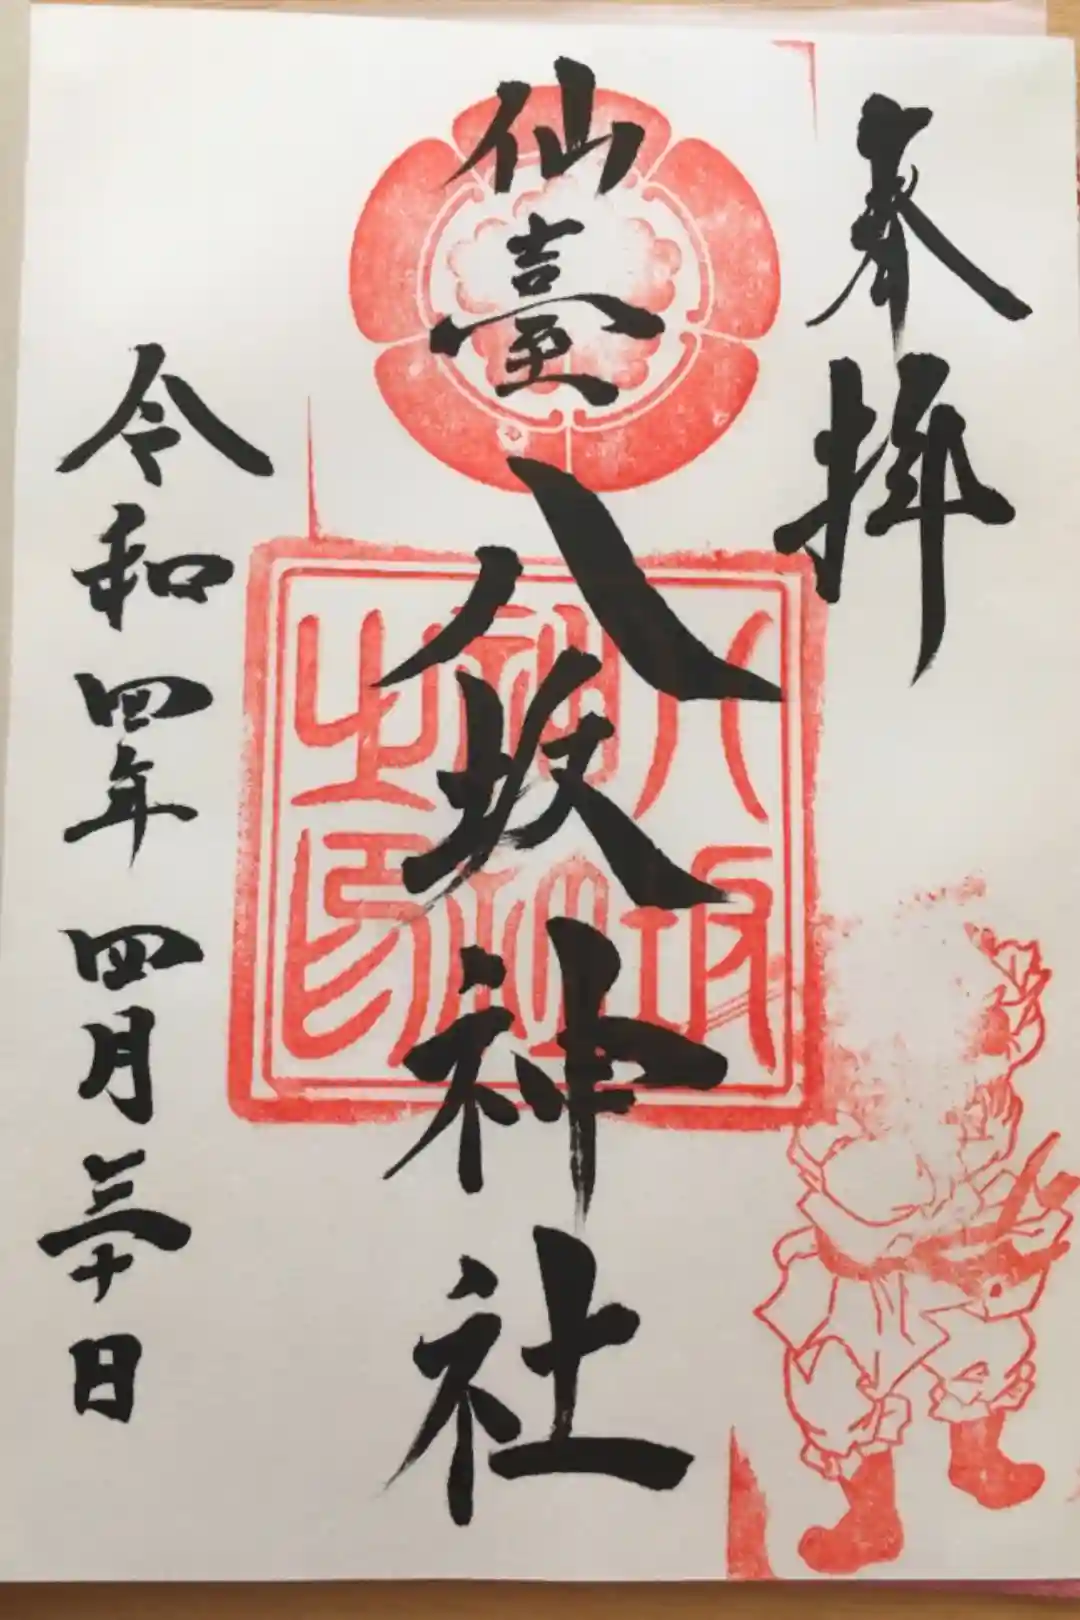 奉拝
仙臺八坂神社
八坂神社之印
令和四年四月三十日